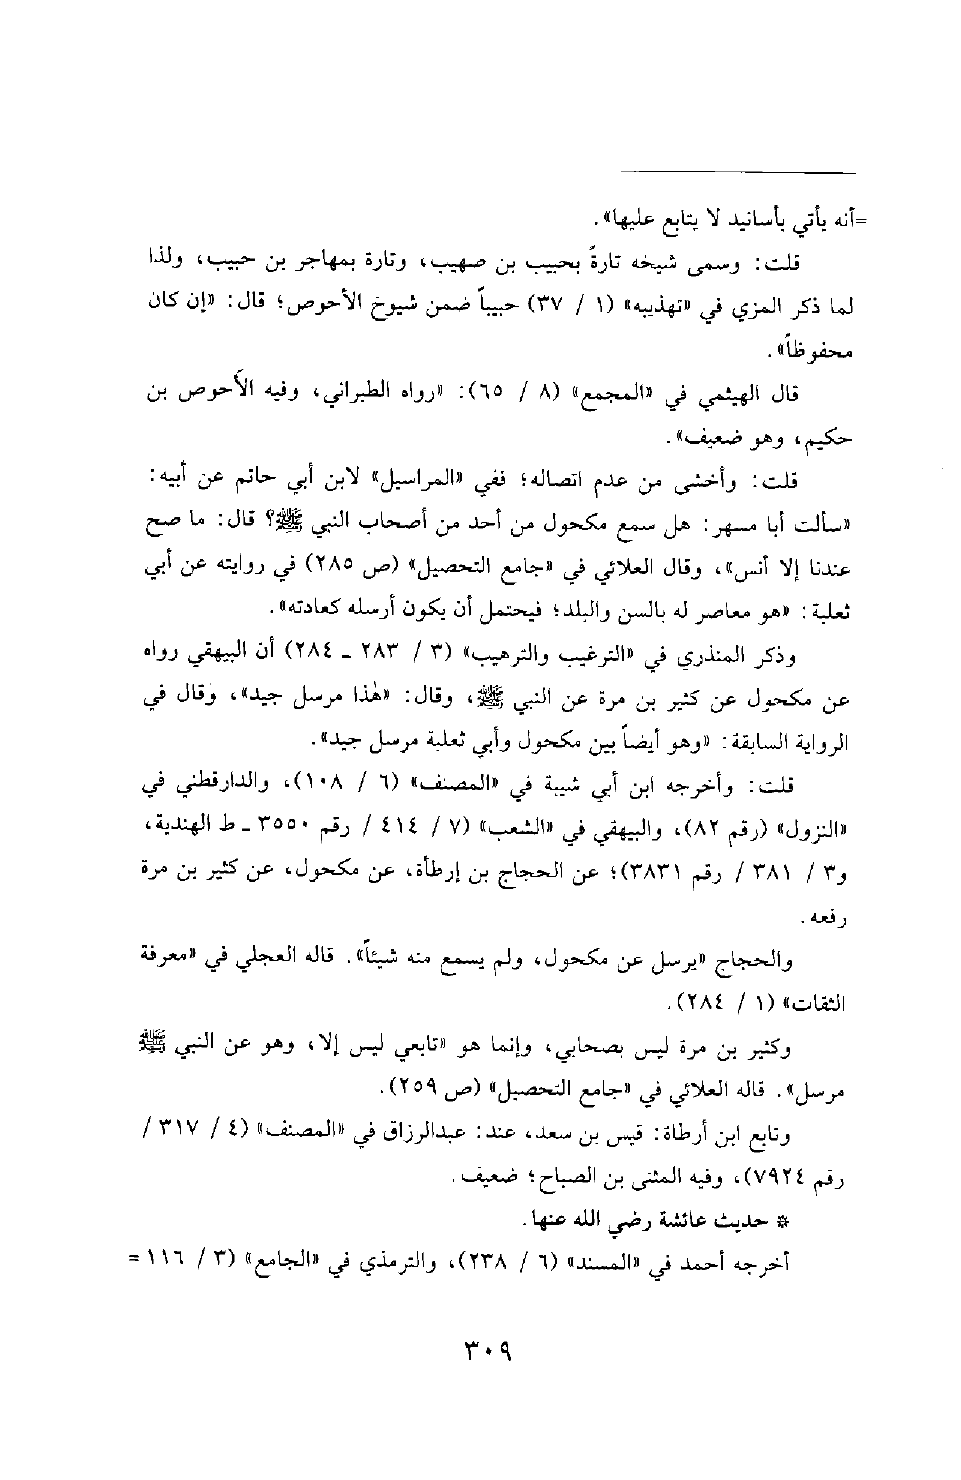 =أنه يأتي بأسانيد لا يتابع عليها».
قلت: وسمى شيخه تارةً بحبيب بن صهيب، وتارة بمهاجر بن حبيب، ولذا
لما ذكر المزي في «تهذيبه» (١ / ٣٧) حبيباً ضمن شيوخ الأحوص؛ قال: «إن كان
محفوظاً».
قال الهيثمي في «المجمع» (٨ / ٦٥): «رواه الطبراني، وفيه الأحوص بن
حكيم، وهو ضعيف».
قلت: وأخشى من عدم اتصاله؛ ففي «المراسيل» لابن أبي حاتم عن أبيه:
«سألت أبا مسهر: هل سمع مكحول من أحد من أصحاب النبي ﷺ؟ قال: ما صح
عندنا إلا أنس»، وقال العلائي في «جامع التحصيل» (ص ٢٨٥) في روايته عن أبي
ثعلبة: «هو معاصر له بالسن والبلد؛ فيحتمل أن يكون أرسله كعادته».
وذكر المنذري في «الترغيب والترهيب» (٣ / ٢٨٣ ـ ٢٨٤) أن البيهقي رواه
عن مكحول عن كثير بن مرة عن النبي ﷺ، وقال: «هٰذا مرسل جيد»، وقال في
الرواية السابقة: «وهو أيضاً بين مكحول وأبي ثعلبة مرسل جيد».
قلت: وأخرجه ابن أبي شيبة في «المصنف» (٦ / ١٠٨)، والدارقطني في
«النزول» (رقم ٨٢)، والبيهقي في «الشعب» (٧ / ٤١٤ / رقم ٣٥٥٠ ـ ط الهندية،
و٣ / ٣٨١ / رقم ٣٨٣١)؛ عن الحجاج بن إرطأة، عن مكحول، عن كثير بن مرة
رفعه.
والحجاج «يرسل عن مكحول، ولم يسمع منه شيئاً». قاله العجلي في «معرفة
الثقات» (١ / ٢٨٤).
وكثير بن مرة ليس بصحابي، وإنما هو «تابعي ليس إلا، وهو عن النبي ﷺ
مرسل». قاله العلائي في «جامع التحصيل» (ص ٢٥٩).
وتابع ابن أرطاة: قيس بن سعد، عند: عبدالرزاق في «المصنف» (٤ / ٣١٧ /
رقم ٧٩٢٤)، وفيه المثنى بن الصباح؛ ضعيف.
* حديث عائشة رضي الله عنها.
أخرجه أحمد في «المسند» (٦ / ٢٣٨)، والترمذي في «الجامع» (٣ / ١١٦ =
٣٠٩